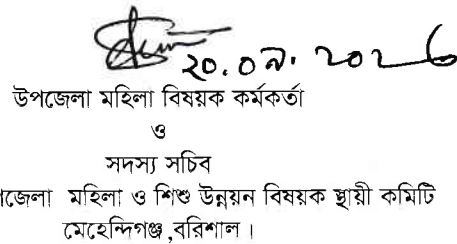 ২০.০৯.২০২৬
উপজেলা মহিলা বিষয়ক কর্মকর্তা
ও
সদস্য সচিব
জেলা মহিলা ও শিশু উন্নয়ন বিষয়ক স্থায়ী কমিটি
মেহেন্দিগঞ্জ,বরিশাল।